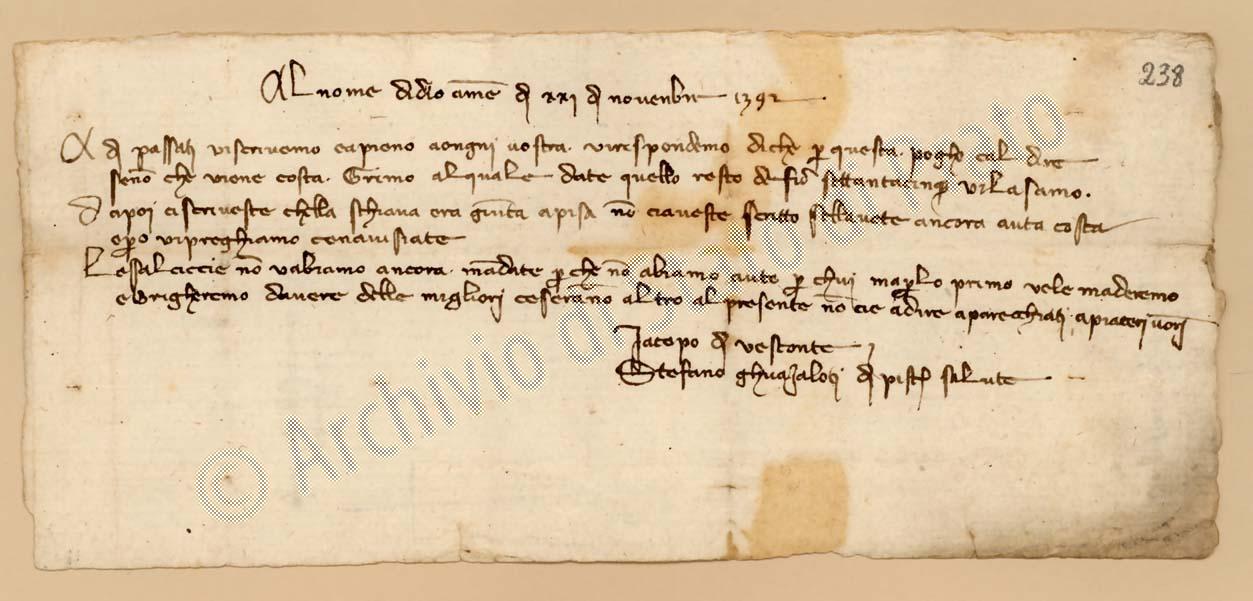 238
Al nome di dio ame di xxi di novenbre 1392
A di passati vi scrivemo e apieno a ongni vostra vi rispondemo di che per questa pogho cal dire
seno che viene costa Grimo al quale date quello resto de fio settantacinque vi lasamo.
Da poi ci scriveste chella schiava era giunta a pisa no ci aveste scritto sella vete ancora auta costa
e pero vi preghiamo cenavisiate
Le salciccie no vabiamo ancora mandate perche no abiamo auto per chui ma per lo primo vele manderemo
e brigheremo davere delle migliori ce serano altro al presente no cie a dire aparecchiati a piaceri vostri
Iacopo di vesconte
Stefano ghuazaloti di pisa salute
© Archivio di Stato di Prato